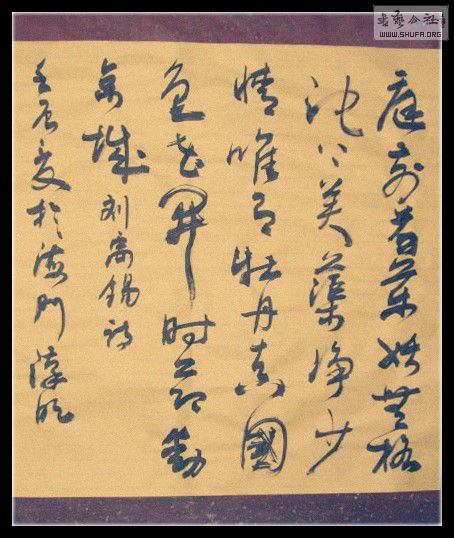 書藝公社
WWW.SHUFA.ORG
庭前芍药妖無格
池上芙蕖净少
情唯有牡丹真國
色花開时节動
京城 刘禹锡诗
壬辰夏於海门